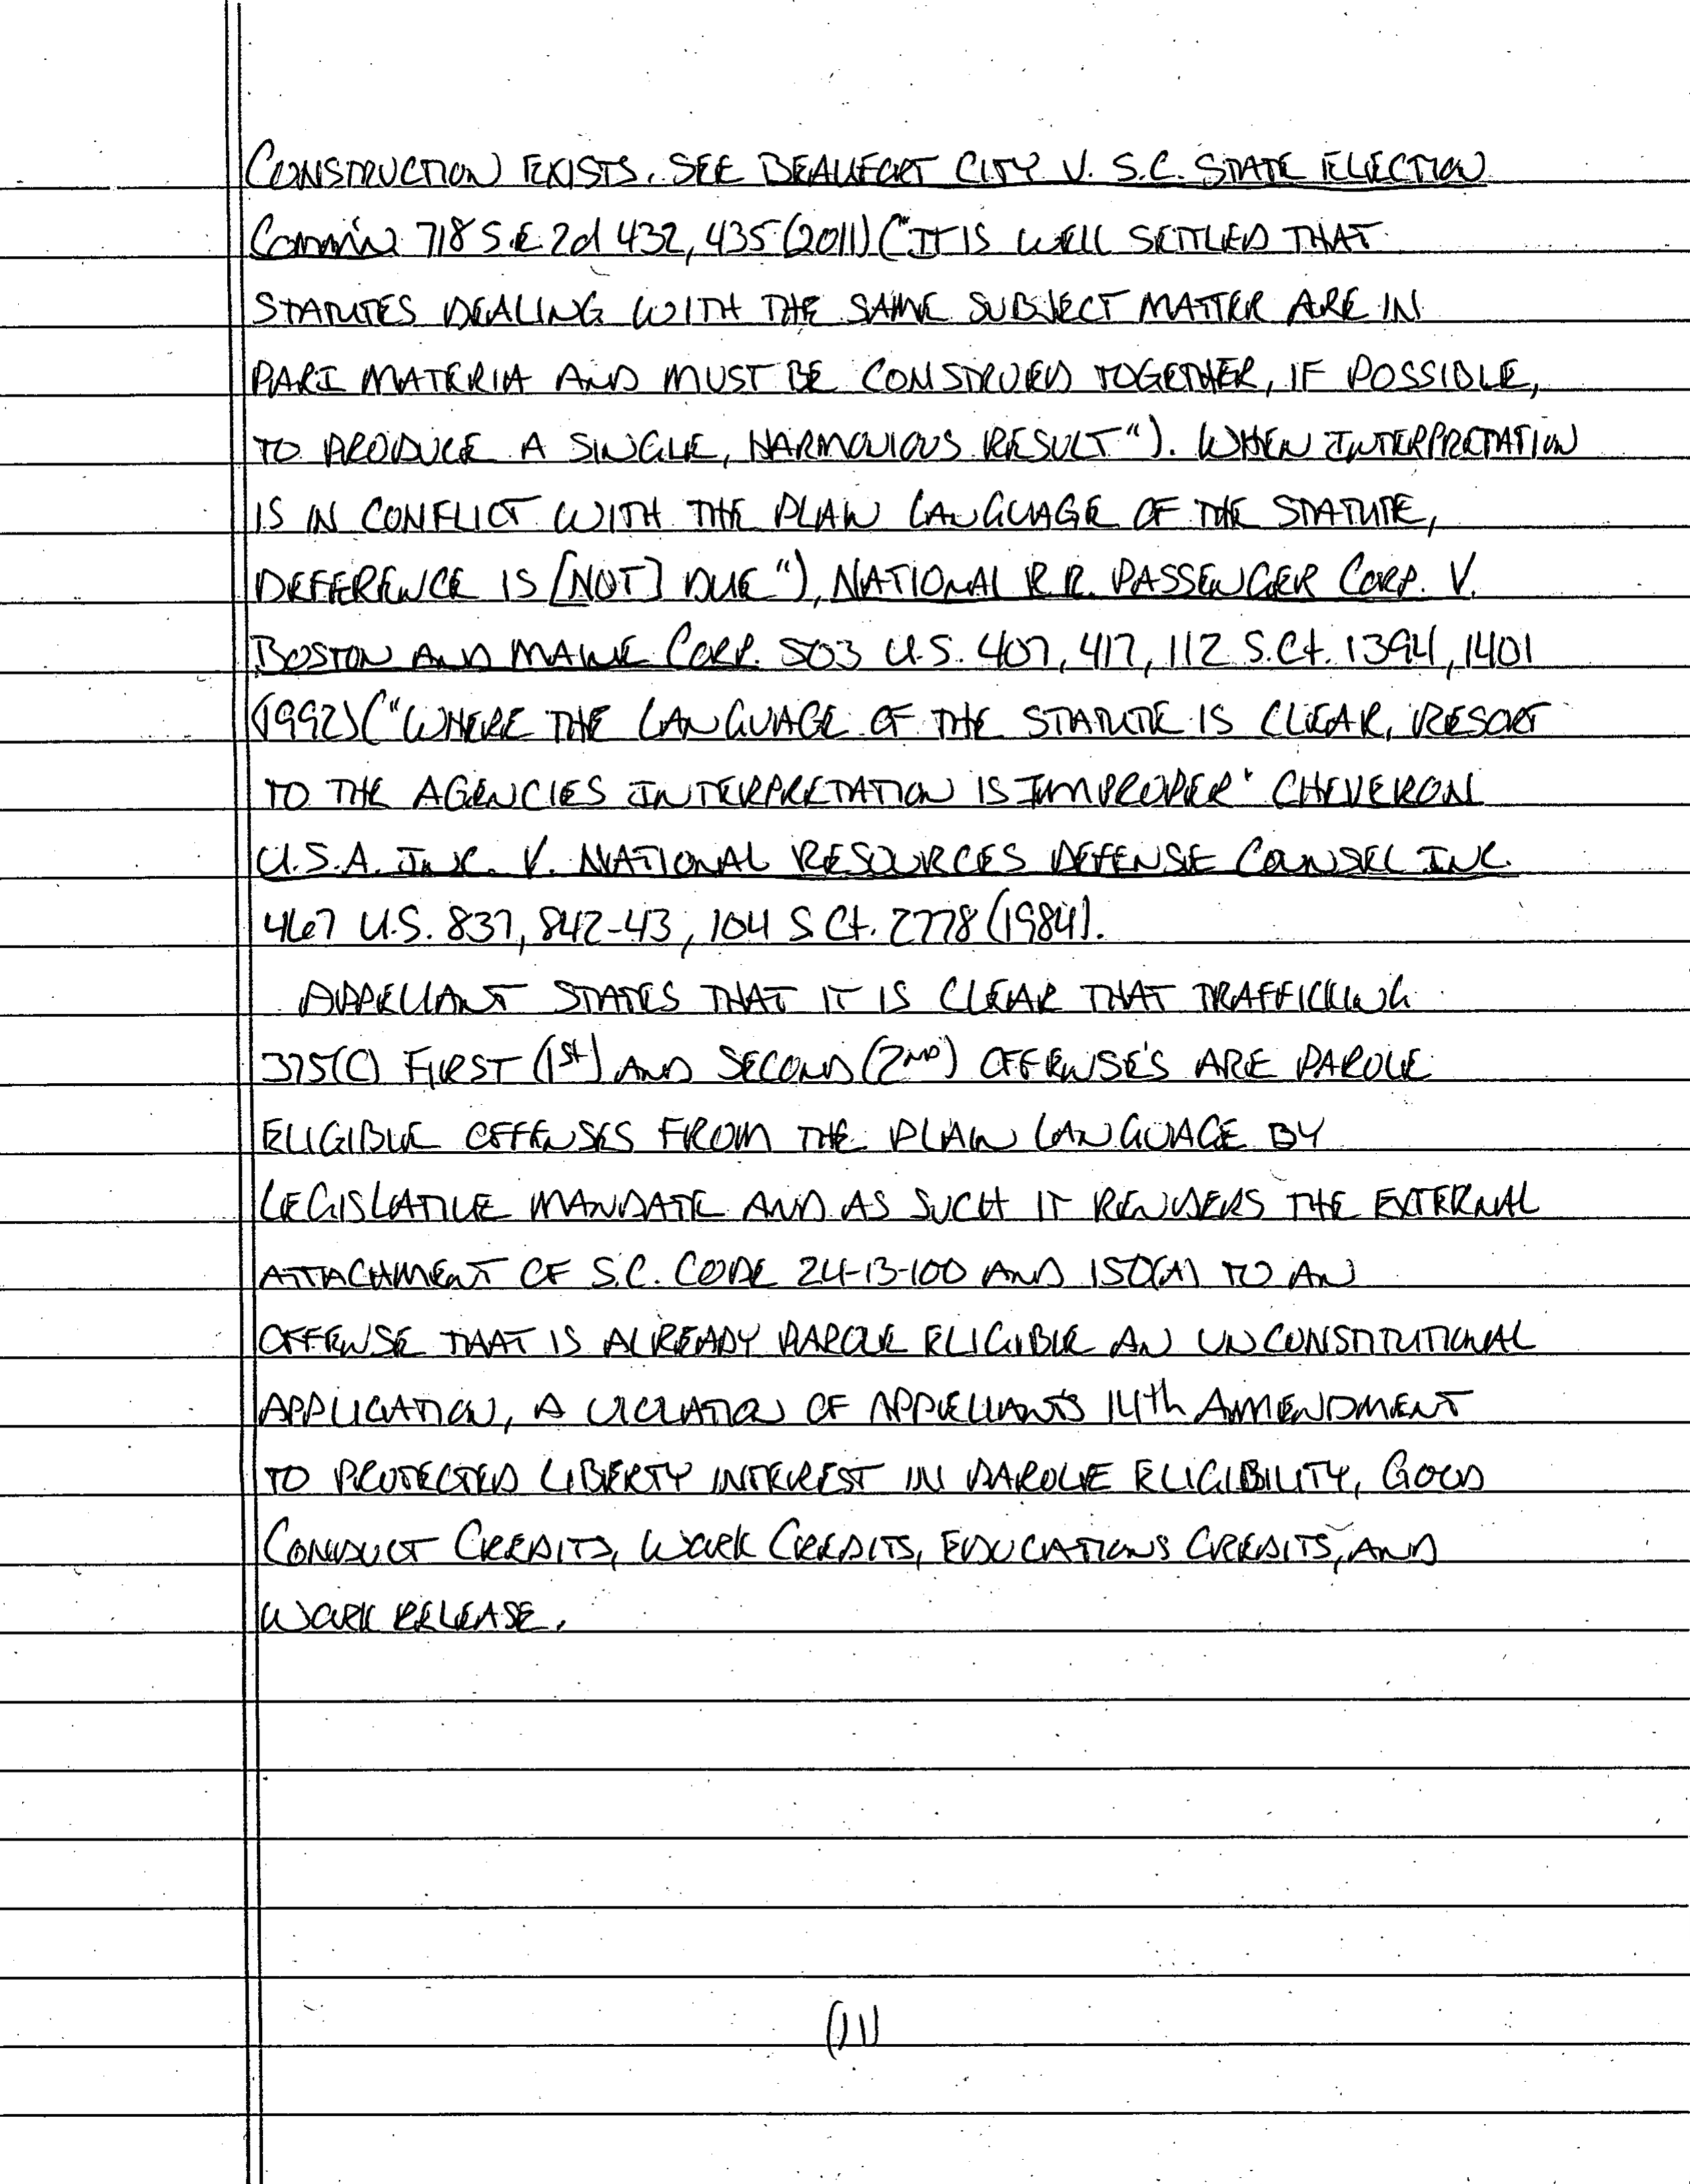 CONSTRUCTION EXISTS. SEE BEAUFORT CITY V. S.C. STATE ELECTION
Comm'n 718 S.E. 2d 432, 435 (2011) ("IT IS WELL SETTLED THAT
STATUTES DEALING WITH THE SAME SUBJECT MATTER ARE IN
PARI MATERIA AND MUST BE CONSTRUED TOGETHER, IF POSSIBLE,
TO PRODUCE A SINGLE, HARMONIOUS RESULT"). WHEN INTERPRETATION
IS IN CONFLICT WITH THE PLAIN LANGUAGE OF THE STATUTE,
DEFERENCE IS [NOT] DUE"), NATIONAL R.R. PASSENGER CORP. V.
BOSTON AND MAINE CORP. 503 U.S. 407, 417, 112 S.Ct. 1394, 1401
(1992) ("WHERE THE LANGUAGE OF THE STATUTE IS CLEAR, RESORT
TO THE AGENCIES INTERPRETATION IS IMPROPER" CHEVERON
U.S.A. INC. V. NATIONAL RESOURCES DEFENSE COUNSEL INC.
467 U.S. 837, 842-43, 104 S Ct. 2778 (1984).
APPELLANT STATES THAT IT IS CLEAR THAT TRAFFICKING
375(C) FIRST (1st) AND SECOND (2ND) OFFENSE'S ARE PAROLE
ELIGIBLE OFFENSES FROM THE PLAIN LANGUAGE BY
LEGISLATIVE MANDATE AND AS SUCH IT RENDERS THE EXTERNAL
ATTACHMENT OF S.C. CODE 24-13-100 AND 150(A) TO AN
OFFENSE THAT IS ALREADY PAROLE ELIGIBLE AN UNCONSTITUTIONAL
APPLICATION, A VIOLATION OF APPELLANT'S 14th AMENDMENT
TO PROTECTED LIBERTY INTEREST IN PAROLE ELIGIBILITY, GOOD
CONDUCT CREDITS, WORK CREDITS, EDUCATIONS CREDITS, AND
WORK RELEASE.
(11)